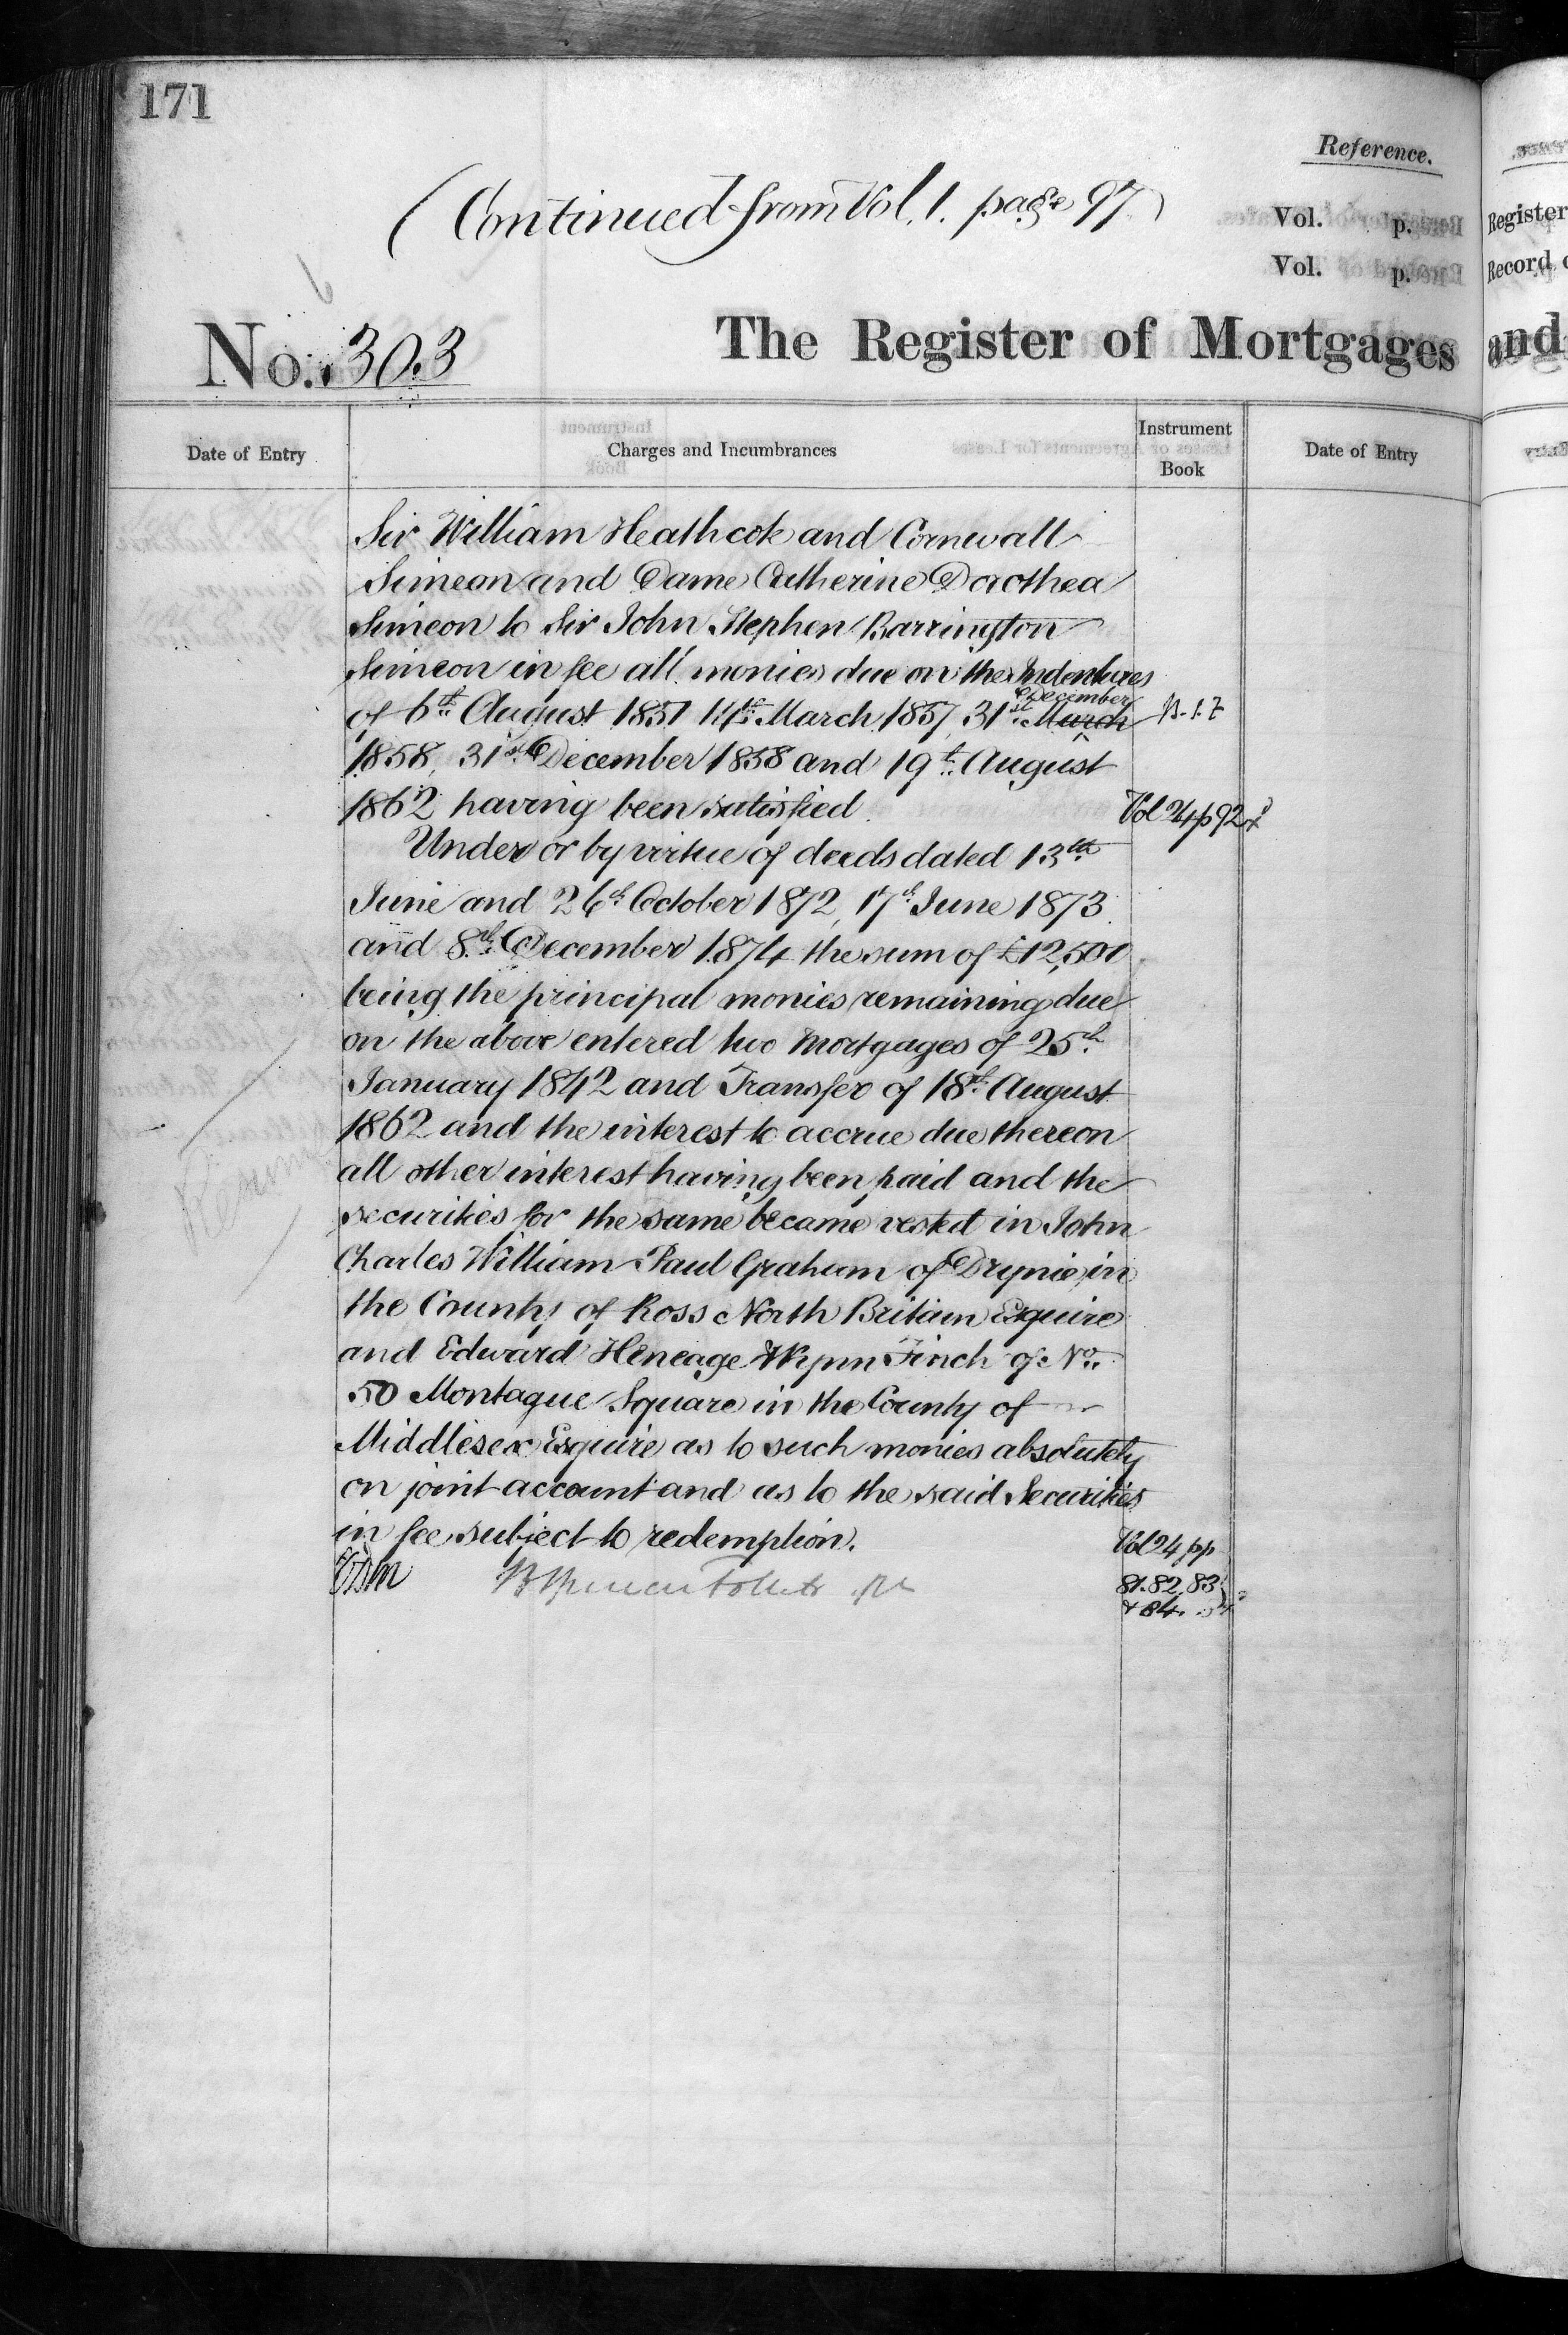 171
Reference.
(Continued from Vol. 1. page 97)
Vol. p.
Vol. p.
No. 303
The Register of Mortgages
Date of Entry
Charges and Incumbrances
Instrument
Book
Date of Entry
Sir William Heathcote and Cornwall
Simeon and Dame Catherine Dorothea
Simeon to Sir John Stephen Barrington
Simeon in fee all monies due on the Indentures
of 6th August 1851 14th March 1857, 31st March December B.1.7
1858, 31st December 1858 and 19th August
1862 having been satisfied. Vol 24 p 92
Under or by virtue of deeds dated 13th
June and 26th October 1872, 17th June 1873
and 8th December 1874 the sum of £12,500
being the principal monies remaining due
on the above entered two Mortgages of 25th
January 1842 and Transfer of 18th August
1862 and the interest to accrue due thereon
all other interest having been paid and the
securities for the same became vested in John
Charles William Paul Graham of Drynie in
the County of Ross North Britain Esquire
and Edward Heneage Wynn Finch of No.
50 Montague Square in the County of
Middlesex Esquire as to such monies absolutely
on joint account and as to the said Securities
in fee subject to redemption. Vol 24 pp
81. 82. 83
+ 84.
Register
Record
and